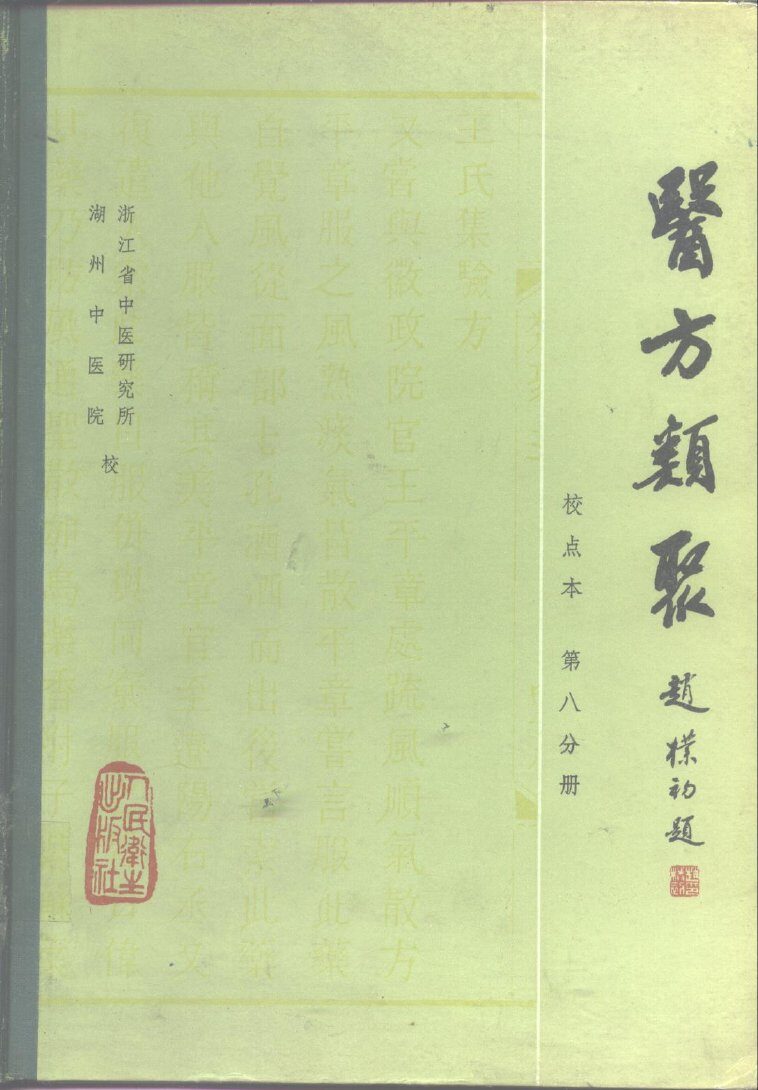 醫方類聚
趙樸初題
校点本 第八分册
王氏集驗方
又嘗與徽政院官王平章處踈風順氣散方
平章服之風熱痰氣皆散平章嘗言服此藥
自覺風從面部七孔洒洒而出後此藥
與他人服皆稱其美平章官至遼陽右丞又
浙江省中医研究所
湖州中医院 校
人民衛生
出版社